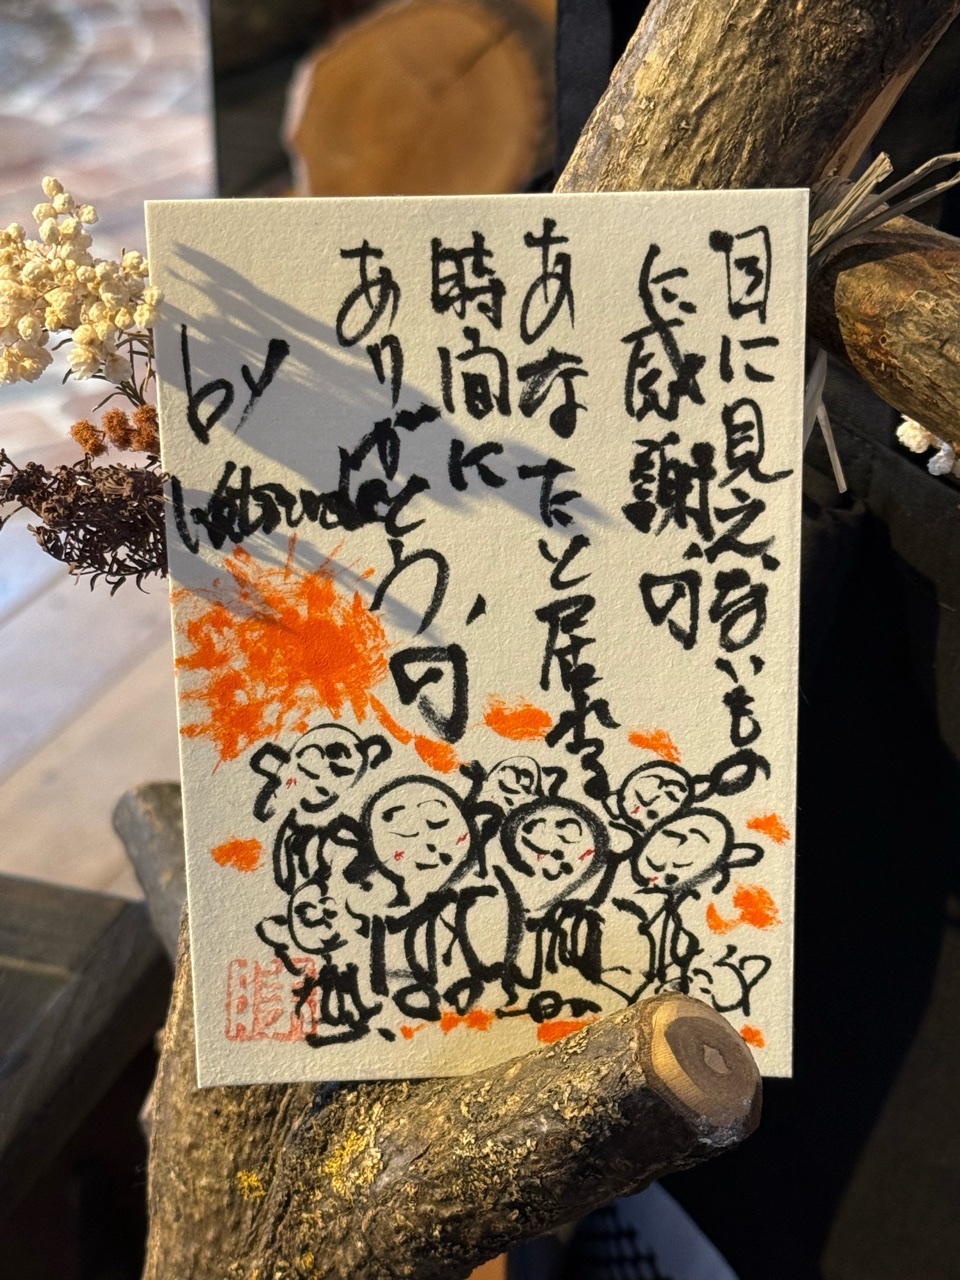 目に見えないもの
に感謝、の
あなたと居れる
時間に
ありがとう、の
by